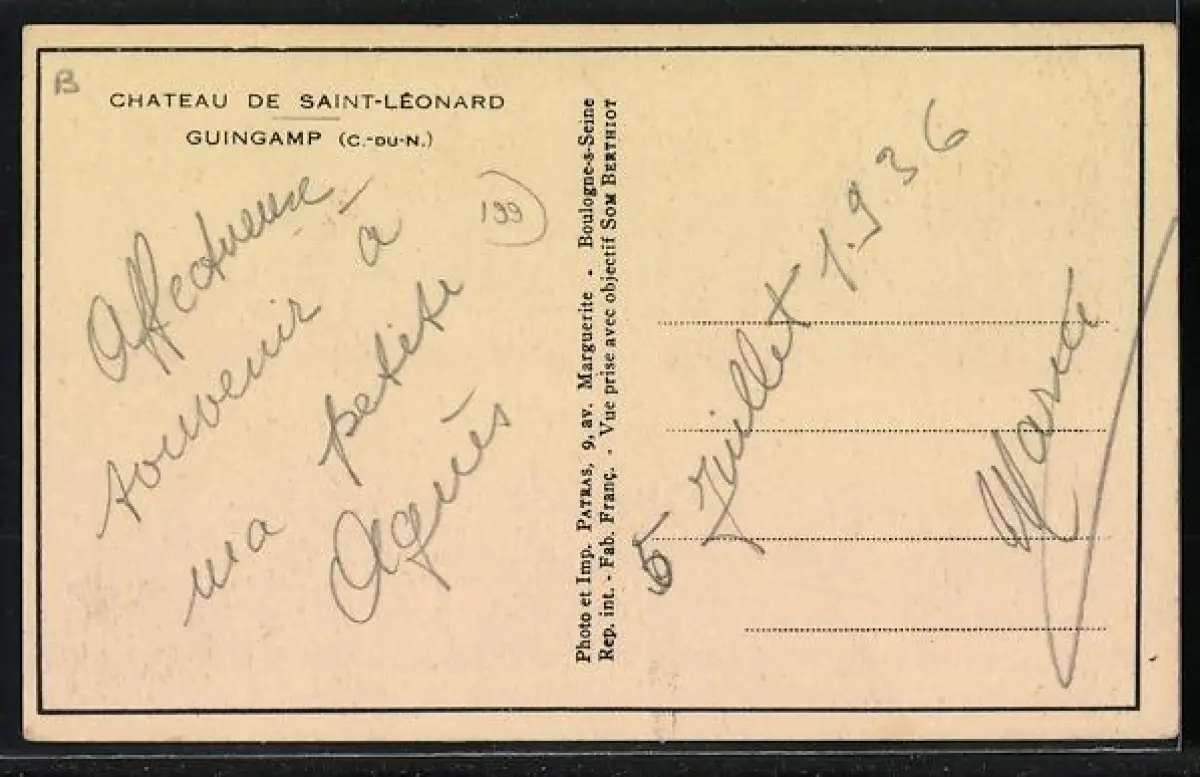 B
CHATEAU DE SAINT-LÉONARD
GUINGAMP (C.-DU-N.)
199
Affectueux
souvenir à
ma petite
Agnès
Photo et Imp. PATRAS, 9, av. Marguerite - Boulogne-s-Seine
Rep. int. - Fab. Franç. - Vue prise avec objectif SOM BERTHIOT
5 Juillet 1.936